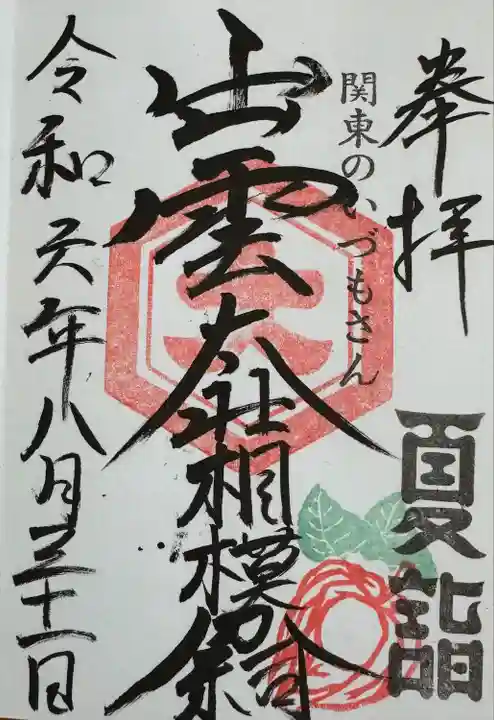 奉拝
夏詣
関東のいづもさん
出雲大社相模分祠
令和元年八月三十一日